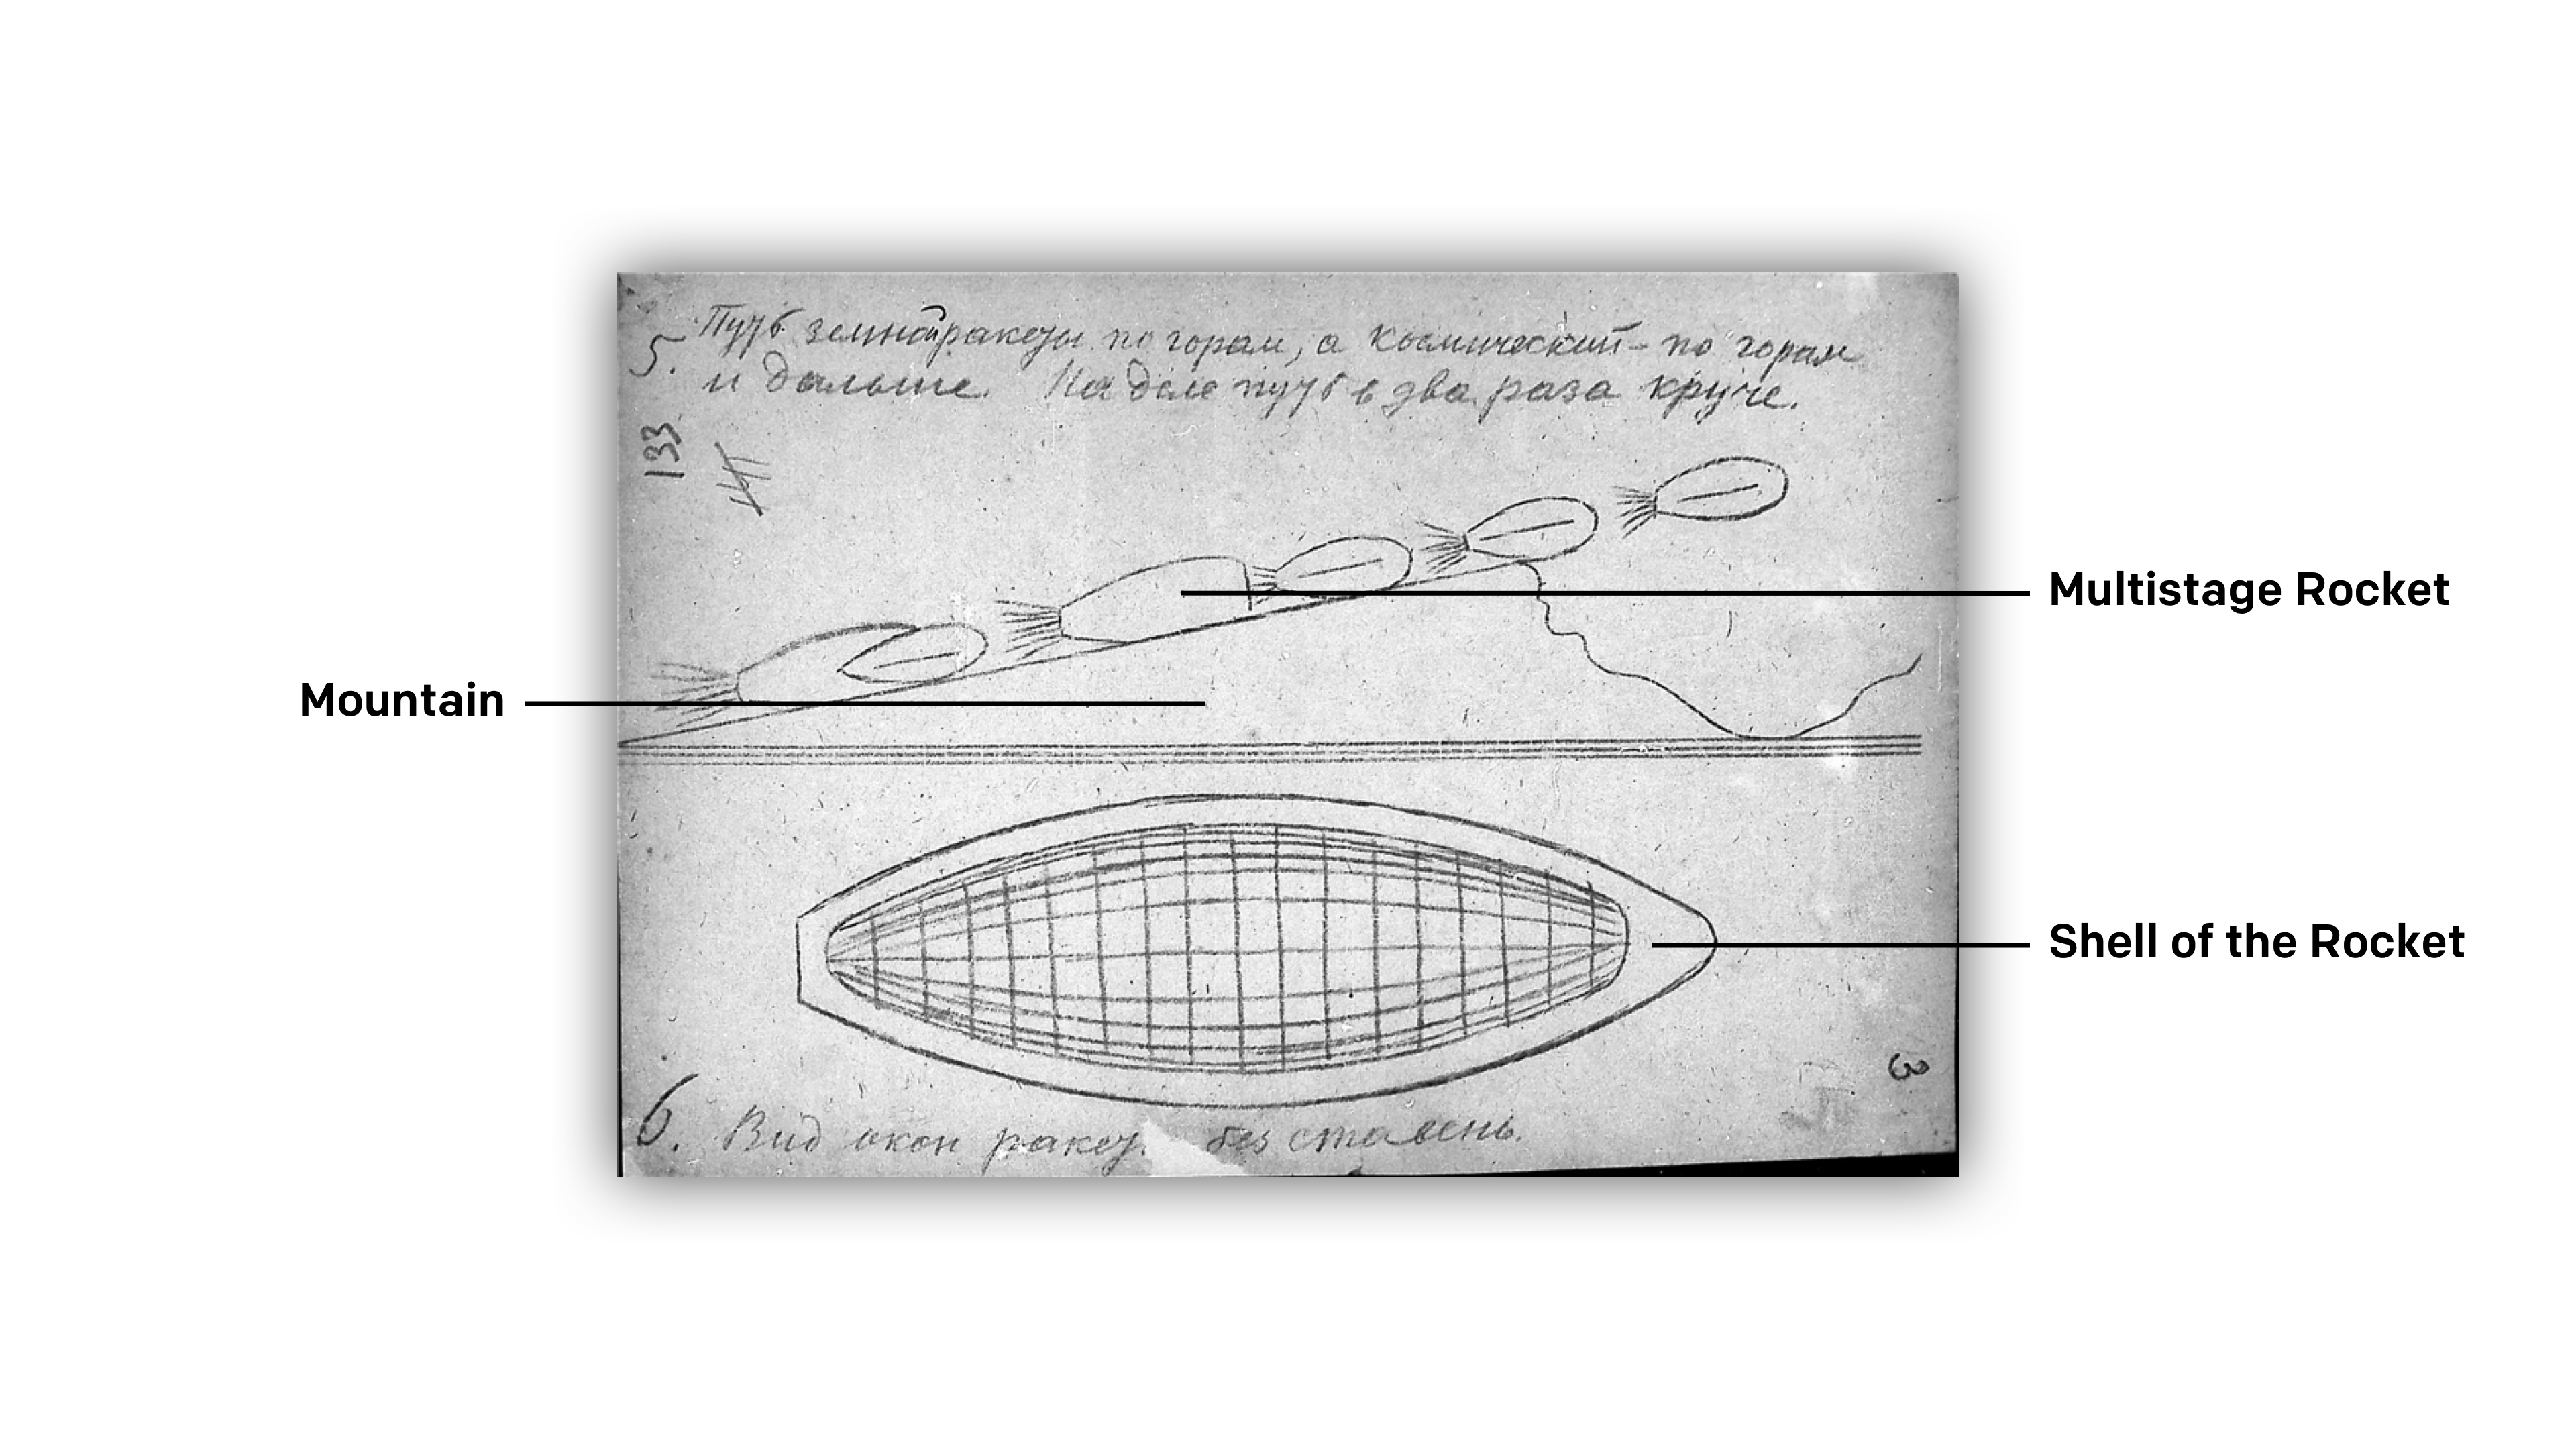 5. Путь земной ракеты по горам, а космический - по горам
и дальше. На деле путь в два раза круче.
133
Multistage Rocket
Mountain
Shell of the Rocket
3
6. Вид окон ракет. без ставень.